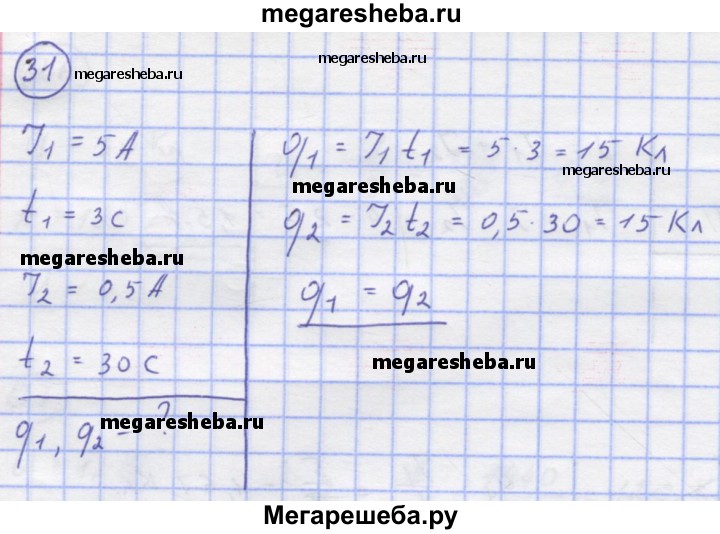 megaresheba.ru
31
megaresheba.ru
megaresheba.ru
I₁ = 5 А
t₁ = 3 с
megaresheba.ru
I₂ = 0,5 А
t₂ = 30 с
q₁, q₂ - ?
megaresheba.ru
q₁ = I₁ t₁ = 5 · 3 = 15 Кл
megaresheba.ru
megaresheba.ru
q₂ = I₂ t₂ = 0,5 · 30 = 15 Кл
q₁ = q₂
megaresheba.ru
Мегарешеба.ру